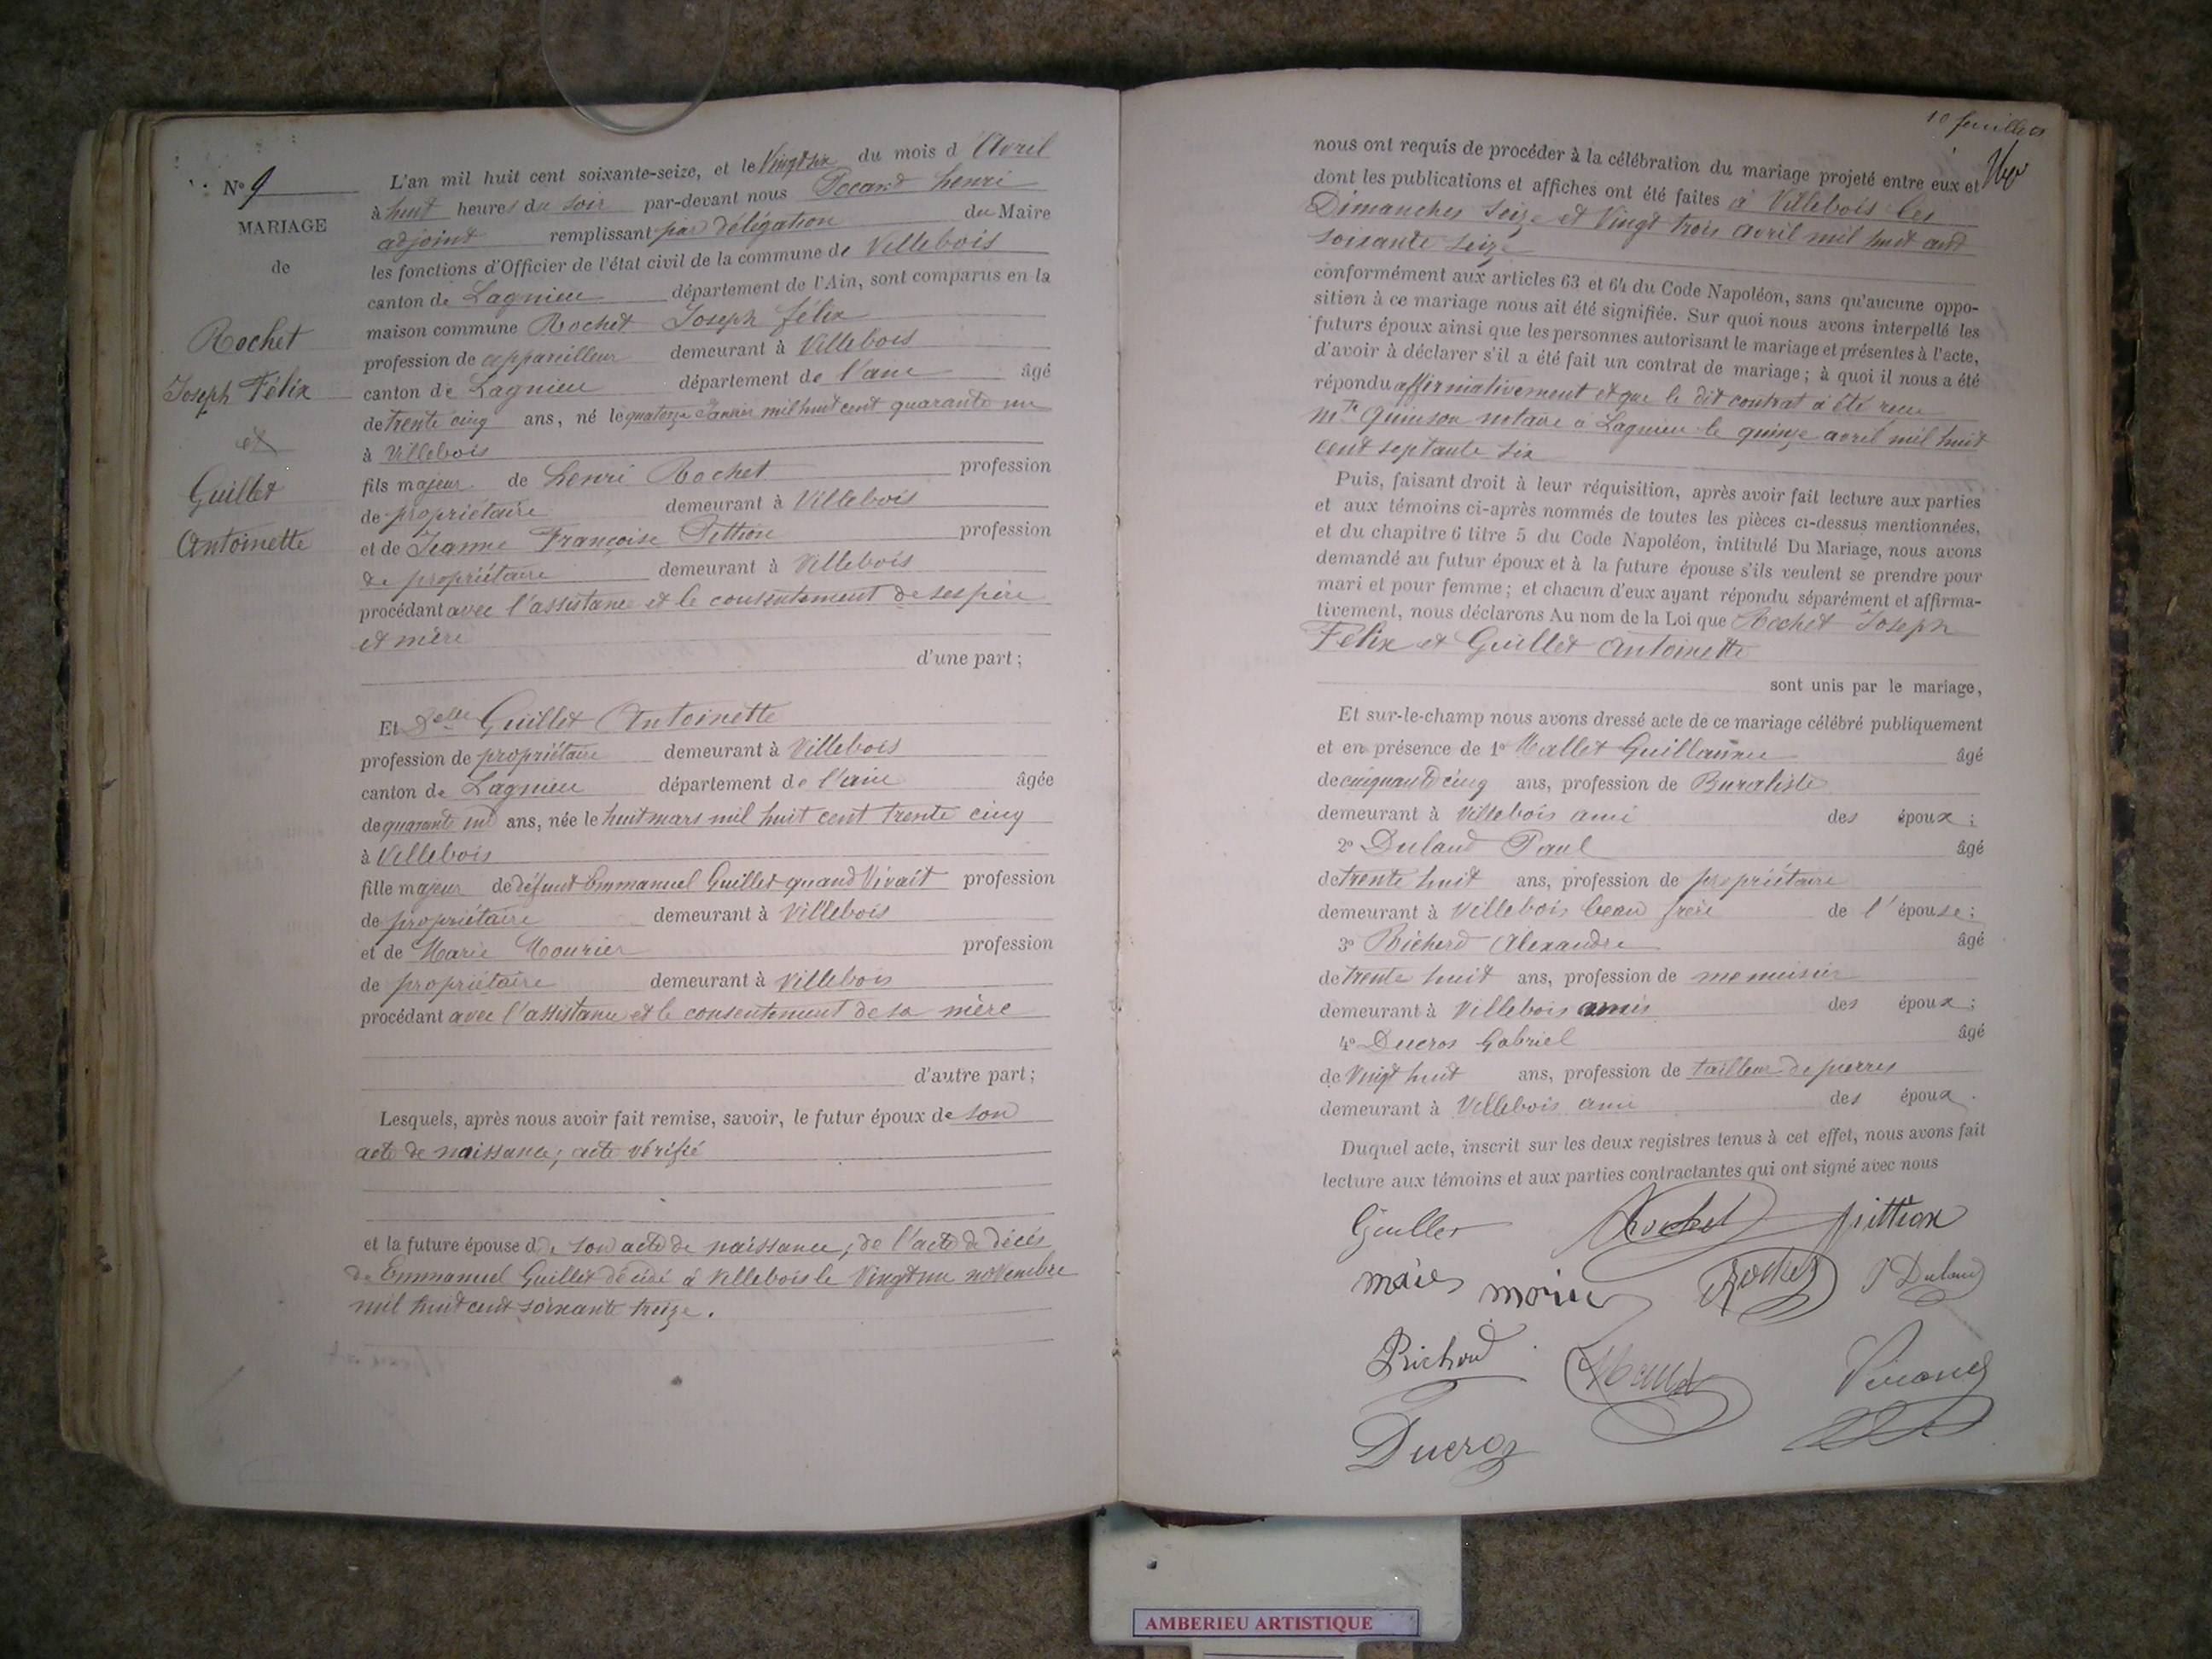 N° 9
MARIAGE
de
Rochet
Joseph Félix
et
Guillet
Antoinette
L'an mil huit cent soixante-seize, et le Vingt six du mois d'Avril
à huit heures du soir par-devant nous Henri
adjoint remplissant par délégation du Maire
les fonctions d'Officier de l'état civil de la commune de Villebois
canton de Lagnieu département de l'Ain, sont comparus en la
maison commune Rochet Joseph félix
profession de appareilleur demeurant à Villebois
canton de Lagnieu département de l'ain âgé
de trente cinq ans, né le quatorze Janvier mil huit cent quarante un
à Villebois
fils majeur de henri Rochet profession
de propriétaire demeurant à Villebois
et de Jeanne Françoise Pittion profession
de propriétaire demeurant à Villebois
procédant avec l'assistance et le consentement de ses père
et mère
d'une part;
Et Delle Guillet Antoinette
profession de propriétaire demeurant à Villebois
canton de Lagnieu département de l'ain âgée
de quarante un ans, née le huit mars mil huit cent trente cinq
à Villebois
fille majeur de défunt Emmanuel Guillet quand Vivait profession
de propriétaire demeurant à Villebois
et de Marie Mourier profession
de propriétaire demeurant à Villebois
procédant avec l'assistance et le consentement de sa mère
d'autre part;
Lesquels, après nous avoir fait remise, savoir, le futur époux de son
acte de naissance; acte vérifié
et la future épouse de son acte de naissance, de l'acte de décès
de Emmanuel Guillet décédé à Villebois le Vingt un novembre
mil huit cent soixante treize.
10 feuillet
nous ont requis de procéder à la célébration du mariage projeté entre eux et
dont les publications et affiches ont été faites à Villebois les
Dimanches seize et Vingt trois avril mil huit cent
soixante seize
conformément aux articles 63 et 64 du Code Napoléon, sans qu'aucune oppo-
sition à ce mariage nous ait été signifiée. Sur quoi nous avons interpellé les
futurs époux ainsi que les personnes autorisant le mariage et présentes à l'acte,
d'avoir à déclarer s'il a été fait un contrat de mariage; à quoi il nous a été
répondu affirmativement et que le dit contrat a été reçu
Quinson notaire à Lagnieu le quinze avril mil huit
cent septante six
Puis, faisant droit à leur réquisition, après avoir fait lecture aux parties
et aux témoins ci-après nommés de toutes les pièces ci-dessus mentionnées,
et du chapitre 6 titre 5 du Code Napoléon, intitulé Du Mariage, nous avons
demandé au futur époux et à la future épouse s'ils veulent se prendre pour
mari et pour femme; et chacun d'eux ayant répondu séparément et affirma-
tivement, nous déclarons Au nom de la Loi que Rochet Joseph
Félix et Guillet Antoinette
sont unis par le mariage,
Et sur-le-champ nous avons dressé acte de ce mariage célébré publiquement
et en présence de 1° Mallet Guillaume âgé
de cinquante cinq ans, profession de Buraliste
demeurant à Villebois ami des époux;
2° Duland Paul âgé
de trente huit ans, profession de propriétaire
demeurant à Villebois beau frère de l'épouse;
3° Richerd Alexandre âgé
de trente huit ans, profession de menuisier
demeurant à Villebois amis des époux;
4° Ducros Gabriel âgé
de Vingt huit ans, profession de tailleur de pierres
demeurant à Villebois ami des époux.
Duquel acte, inscrit sur les deux registres tenus à cet effet, nous avons fait
lecture aux témoins et aux parties contractantes qui ont signé avec nous
Guillet Rochet pittion
Rochet P Duland
Richerd Mallet
Ducros
AMBERIEU ARTISTIQUE